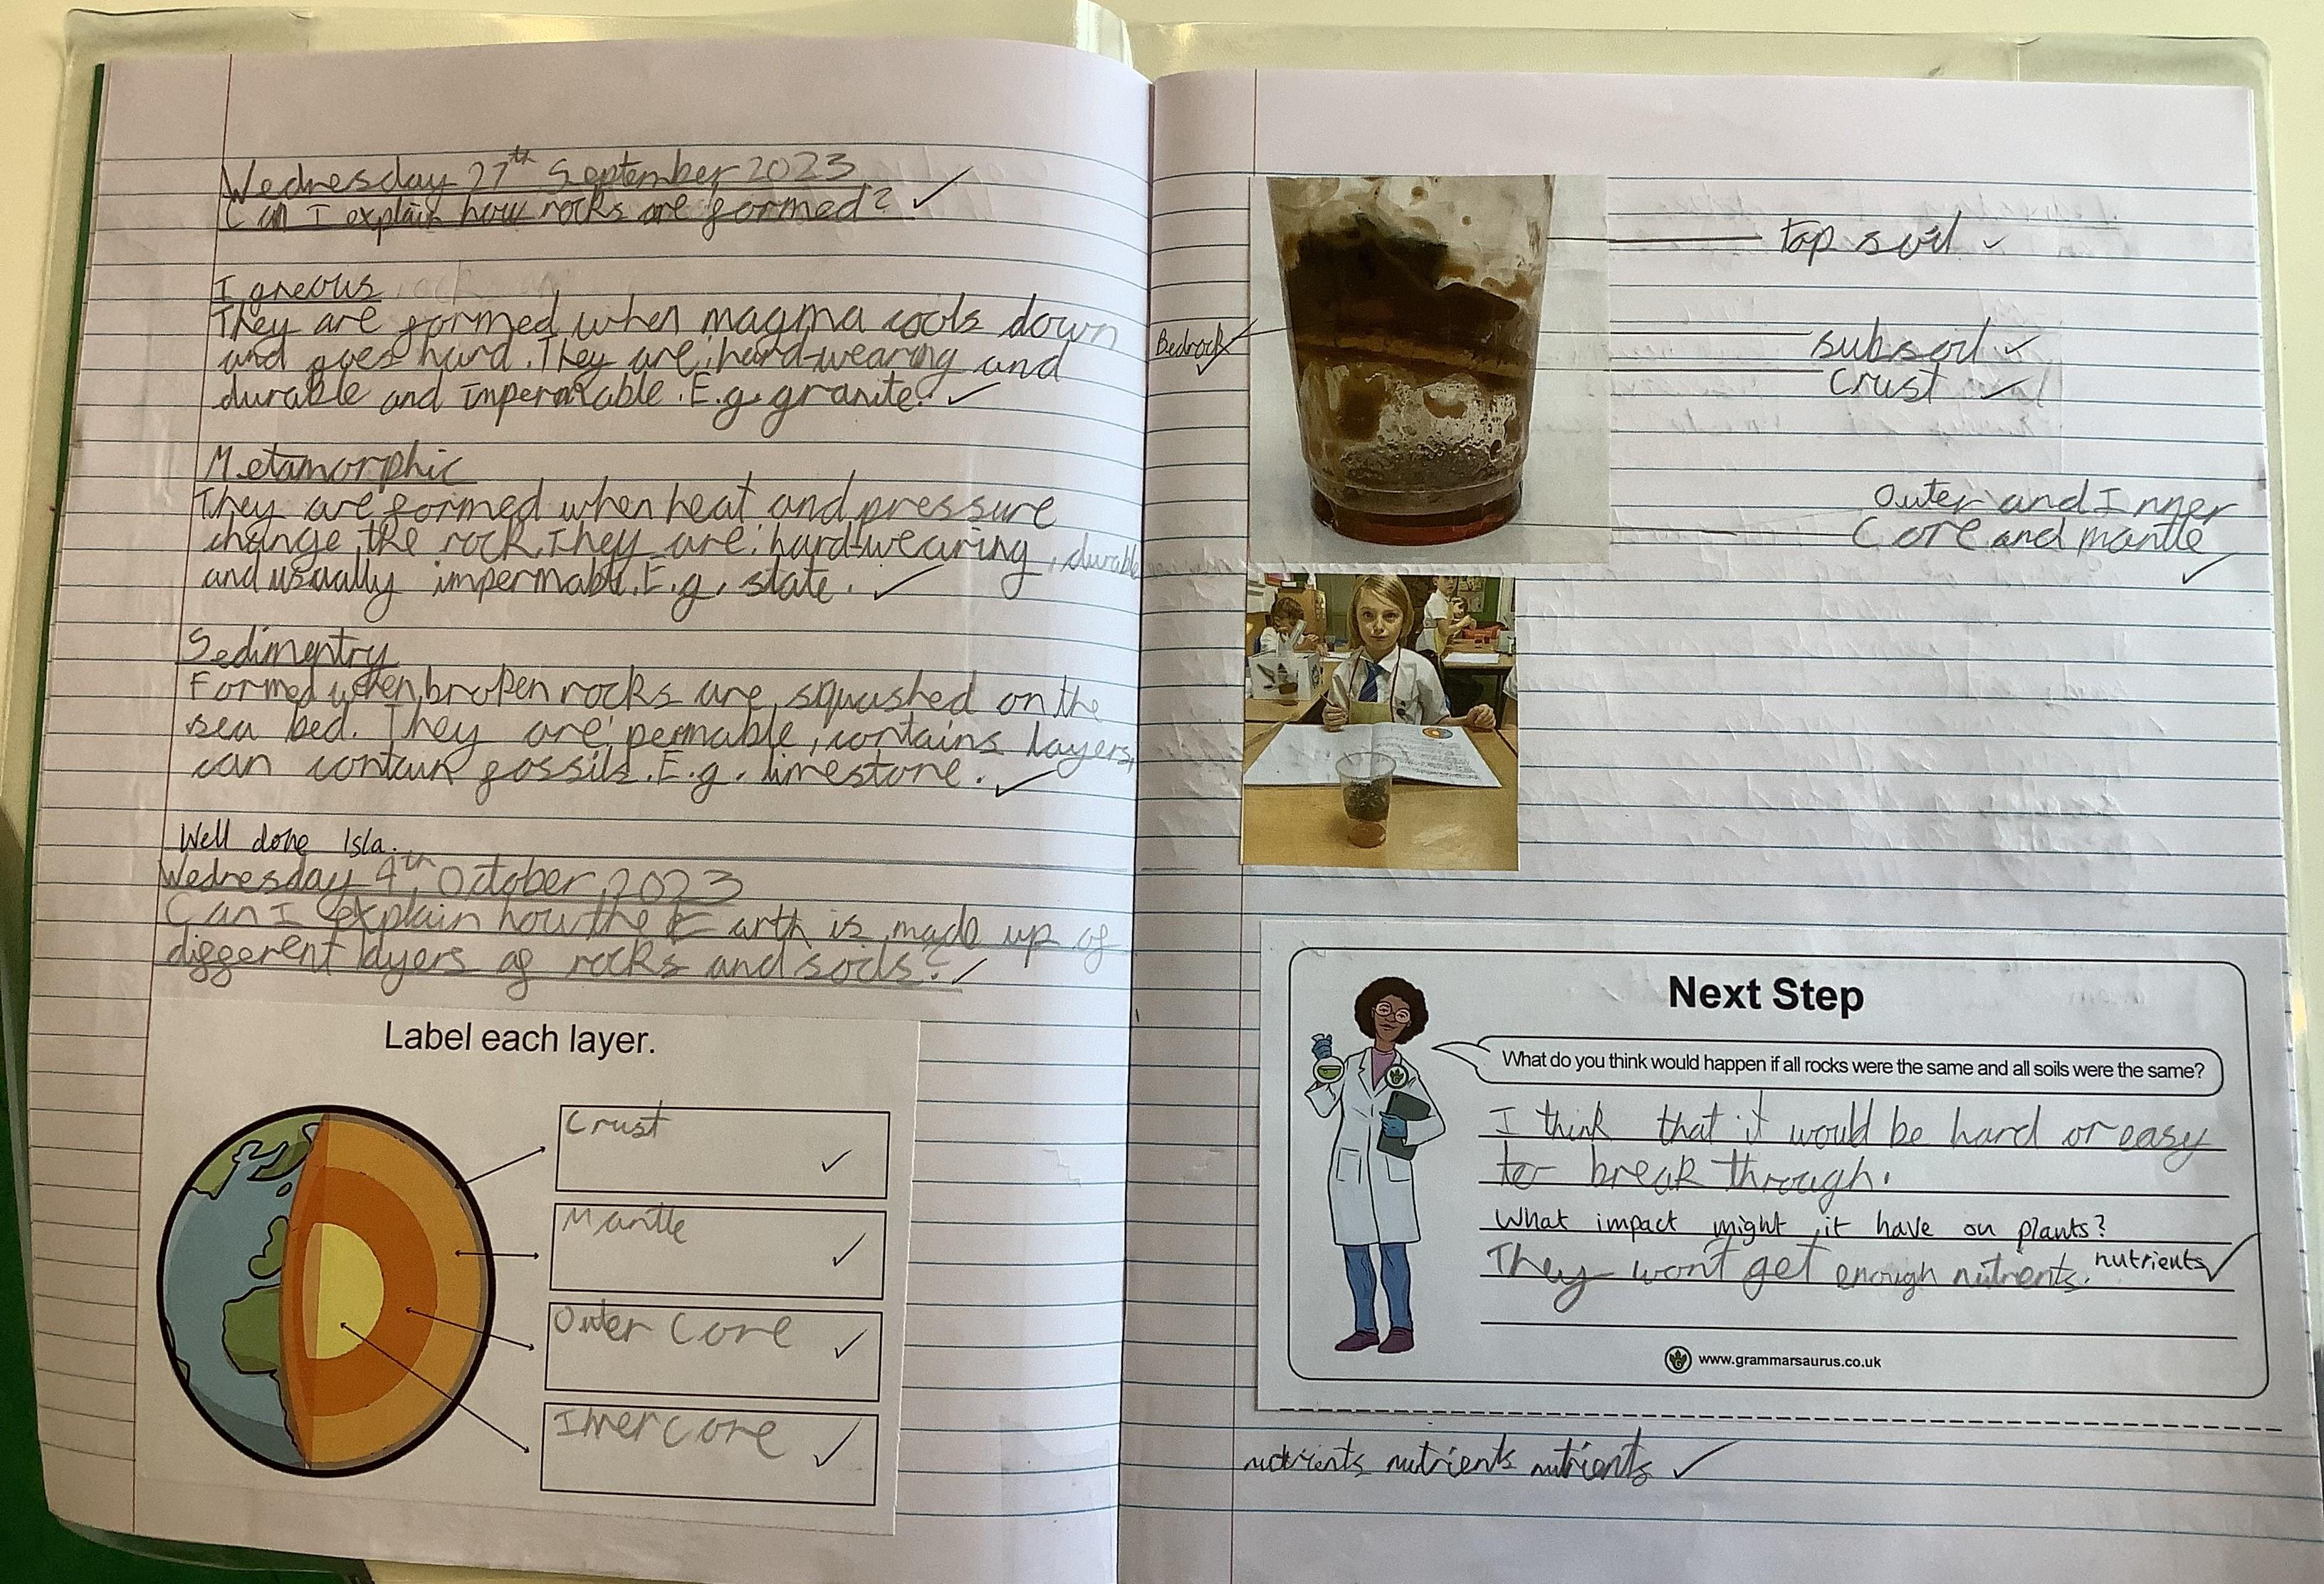 Wednesday 27th September 2023
Can I explain how rocks are formed?
Igneous
They are formed when magma cools down
and goes hard. They are: hard-wearing and
durable and impermable. E.g. granite.
Metamorphic
They are formed when heat and pressure
change the rock. They are: hard-wearing, durable
and usually impermable. E.g. slate.
Sedimentry
Formed when broken rocks are squashed on the
sea bed. They are: permable, contains layers,
can contain fossils. E.g. limestone.
Well done Isla.
Wednesday 4th October 2023
Can I explain how the Earth is made up of
different layers of rocks and soils?
Label each layer.
Crust
Mantle
Outer Core
Inner Core
top soil
Bedrock
subsoil
crust
Outer and Inner
Core and mantle
Next Step
What do you think would happen if all rocks were the same and all soils were the same?
I think that it would be hard or easy
to break through.
What impact might it have on plants?
They wont get enough nutrients. nutrients
www.grammarsaurus.co.uk
nutrients nutrients nutrients